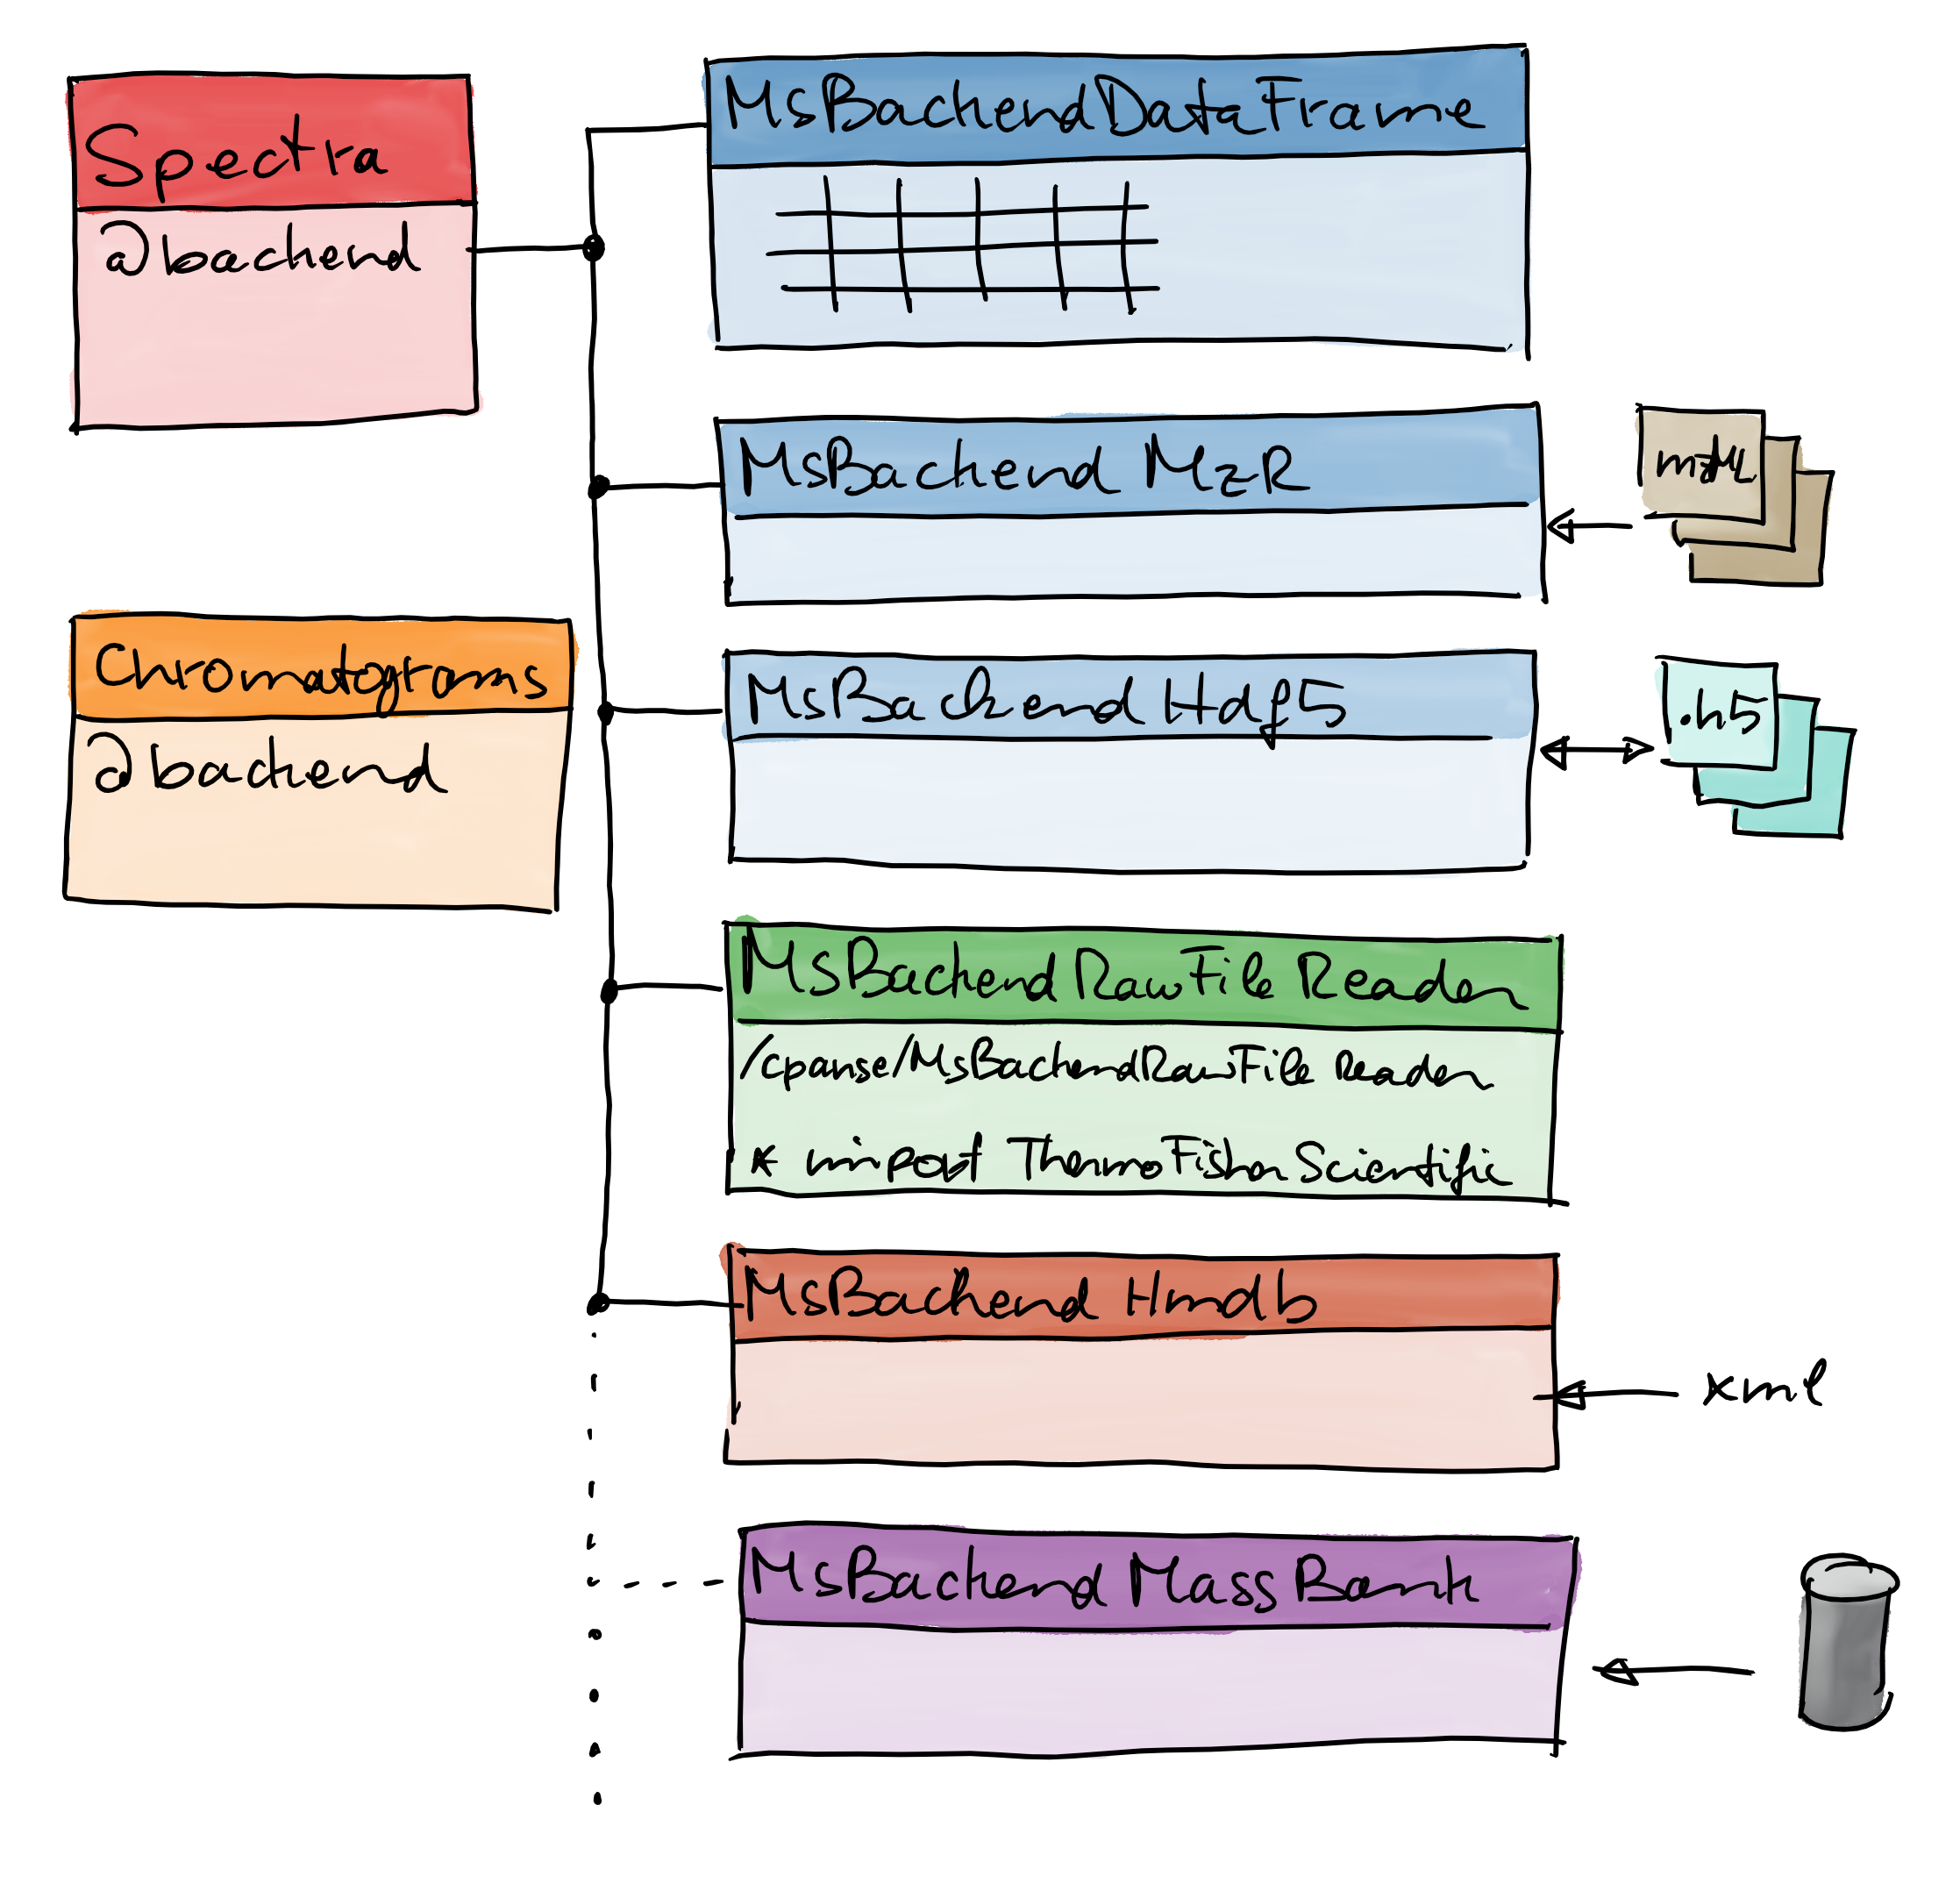 Spectra
@backend
Chromatograms
@backend
MsBackendDataFrame
MsBackend MzR
mzML
MsBackend Hdf5
.h5
MsBackend RawFile Reader
/cpanse/MsBackendRawFile Reader
* import ThermoFisher Scientific
MsBackend Hmdb
xml
MsBackend MassBank